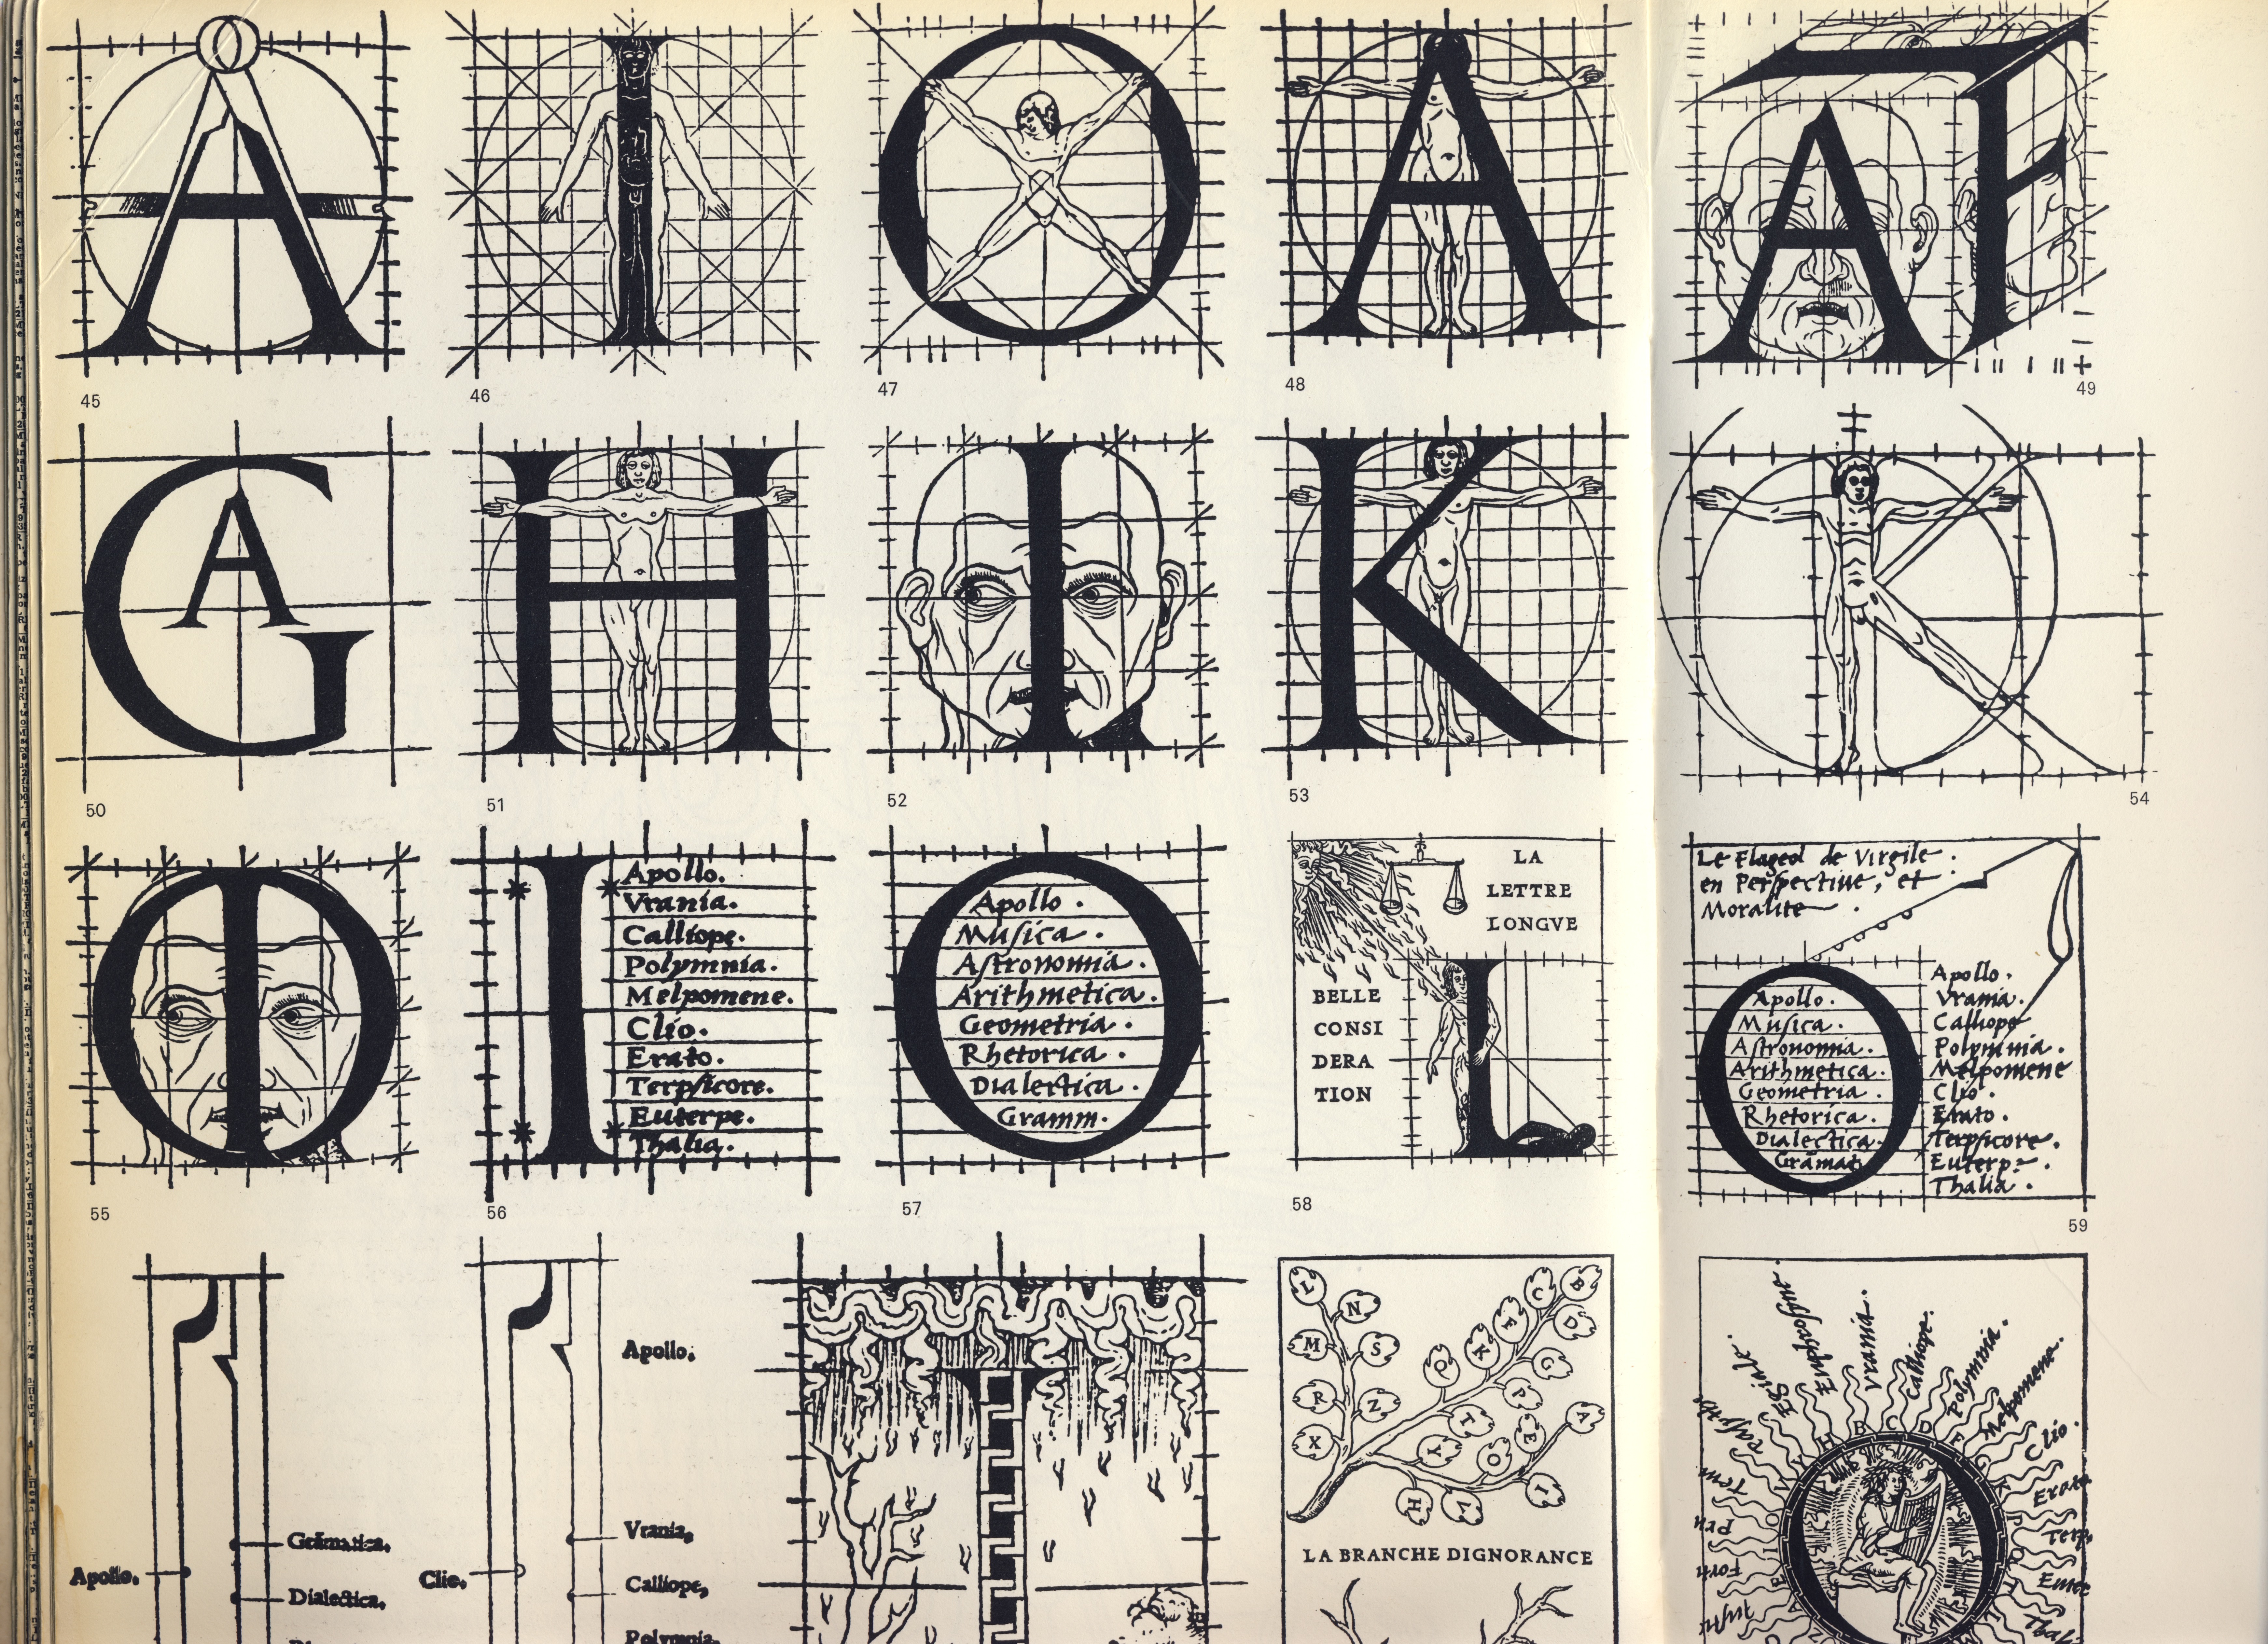 A
I
O
A
A F
45
46
47
48
49
G A
H
I
K
K
50
51
52
53
54
O I
I
Apollo.
Vrania.
Calliope.
Polymnia.
Melpomene.
Clio.
Erato.
Terpſicore.
Euterpe.
Thalia.
O
Apollo .
Muſica .
Aſtronomia .
Arithmetica .
Geometria .
Rhetorica .
Dialectica .
Gramm.
LA
LETTRE
LONGVE
BELLE
CONSI
DERA
TION
L
Le Flageol de Virgile .
en Perſpectiue, et
Moralite .
O
Apollo .
Muſica .
Aſtronomia .
Arithmetica .
Geometria .
Rhetorica .
Dialectica .
Gramat
Apollo .
Vrania .
Calliope
Polymnia .
Melpomene
Clio .
Erato .
Terpſicore .
Euterpe .
Thalia .
55
56
57
58
59
Apollo,
Grāmatica,
Dialectica,
Clio,
Apollo,
Vrania,
Calliope,
Polymnia,
L
N
M
S
R
Z
X
C
B
F
D
K
Q
G
P
T
E
A
Y
O
H
I
LA BRANCHE DIGNORANCE
Euphroſine .
Vrania .
Calliope .
Polymnia .
Melpomene .
Clio .
Erato
Terp
Thali
H B C D F G K
O